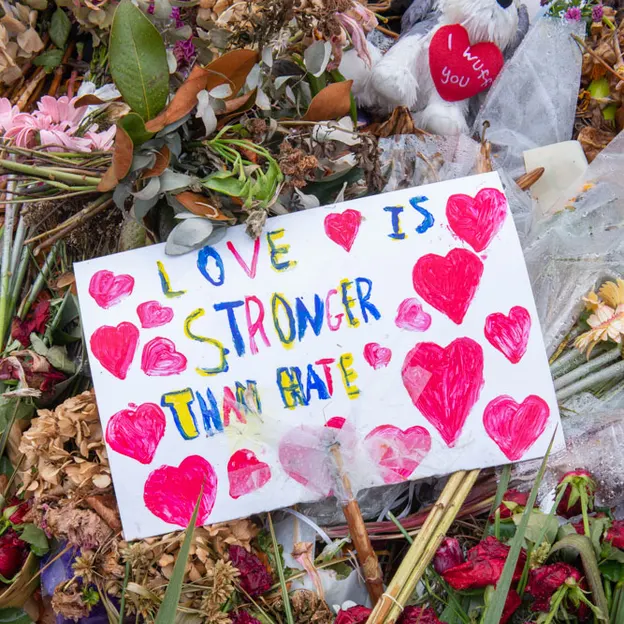 I wuff
you
LOVE IS
STRONGER
THAN HATE